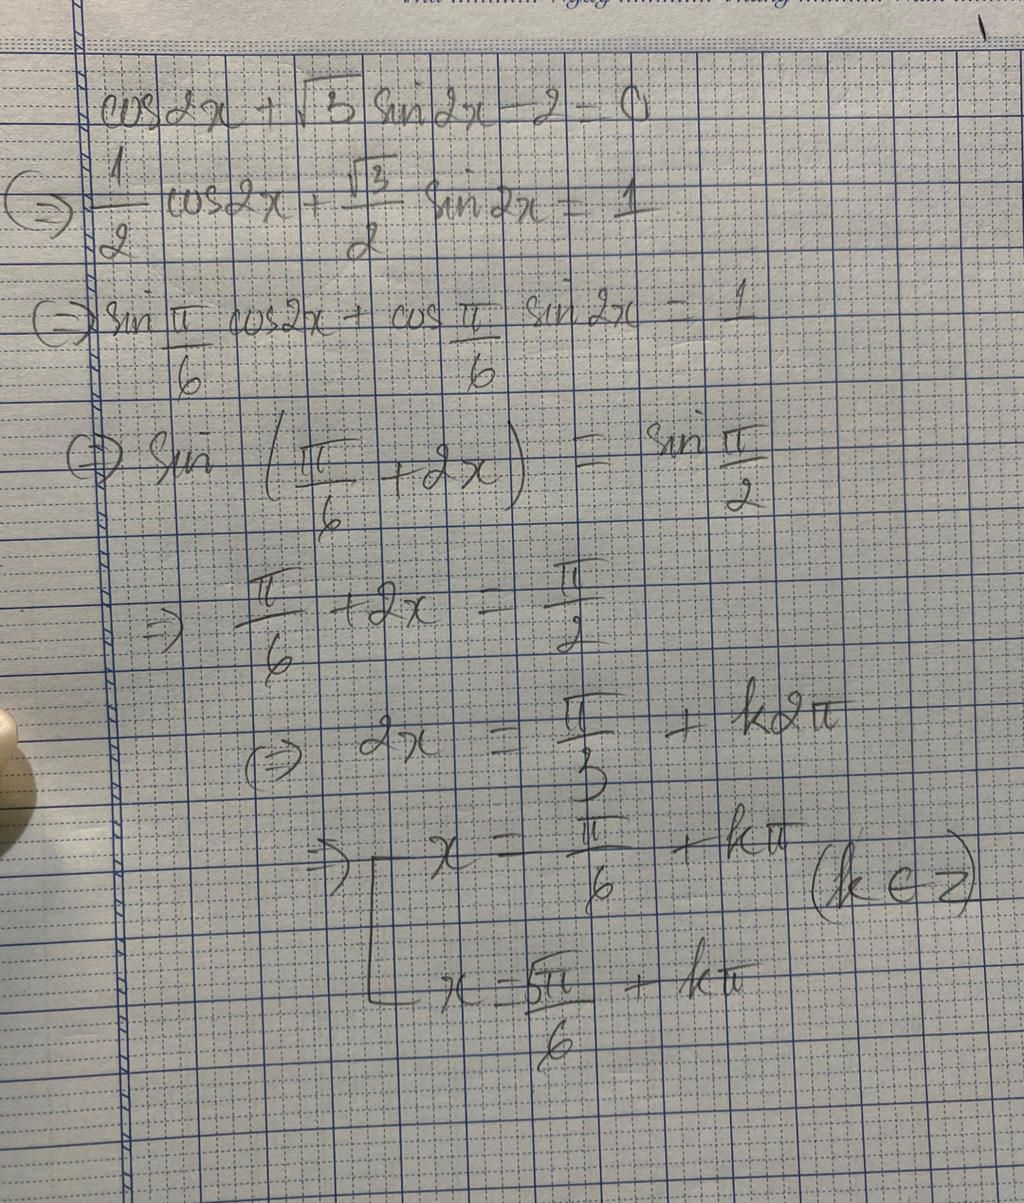 cos2x + √3 sin2x - 2 = 0
⇔ 1/2 cos2x + √3/2 sin2x = 1
⇔ sin π/6 cos2x + cos π/6 sin2x = 1
⇔ sin (π/6 + 2x) = sin π/2
⇒ π/6 + 2x = π/2
⇔ 2x = π/3 + k2π
⇒ [ x = π/6 + kπ (k ∈ Z)
x = 5π/6 + kπ